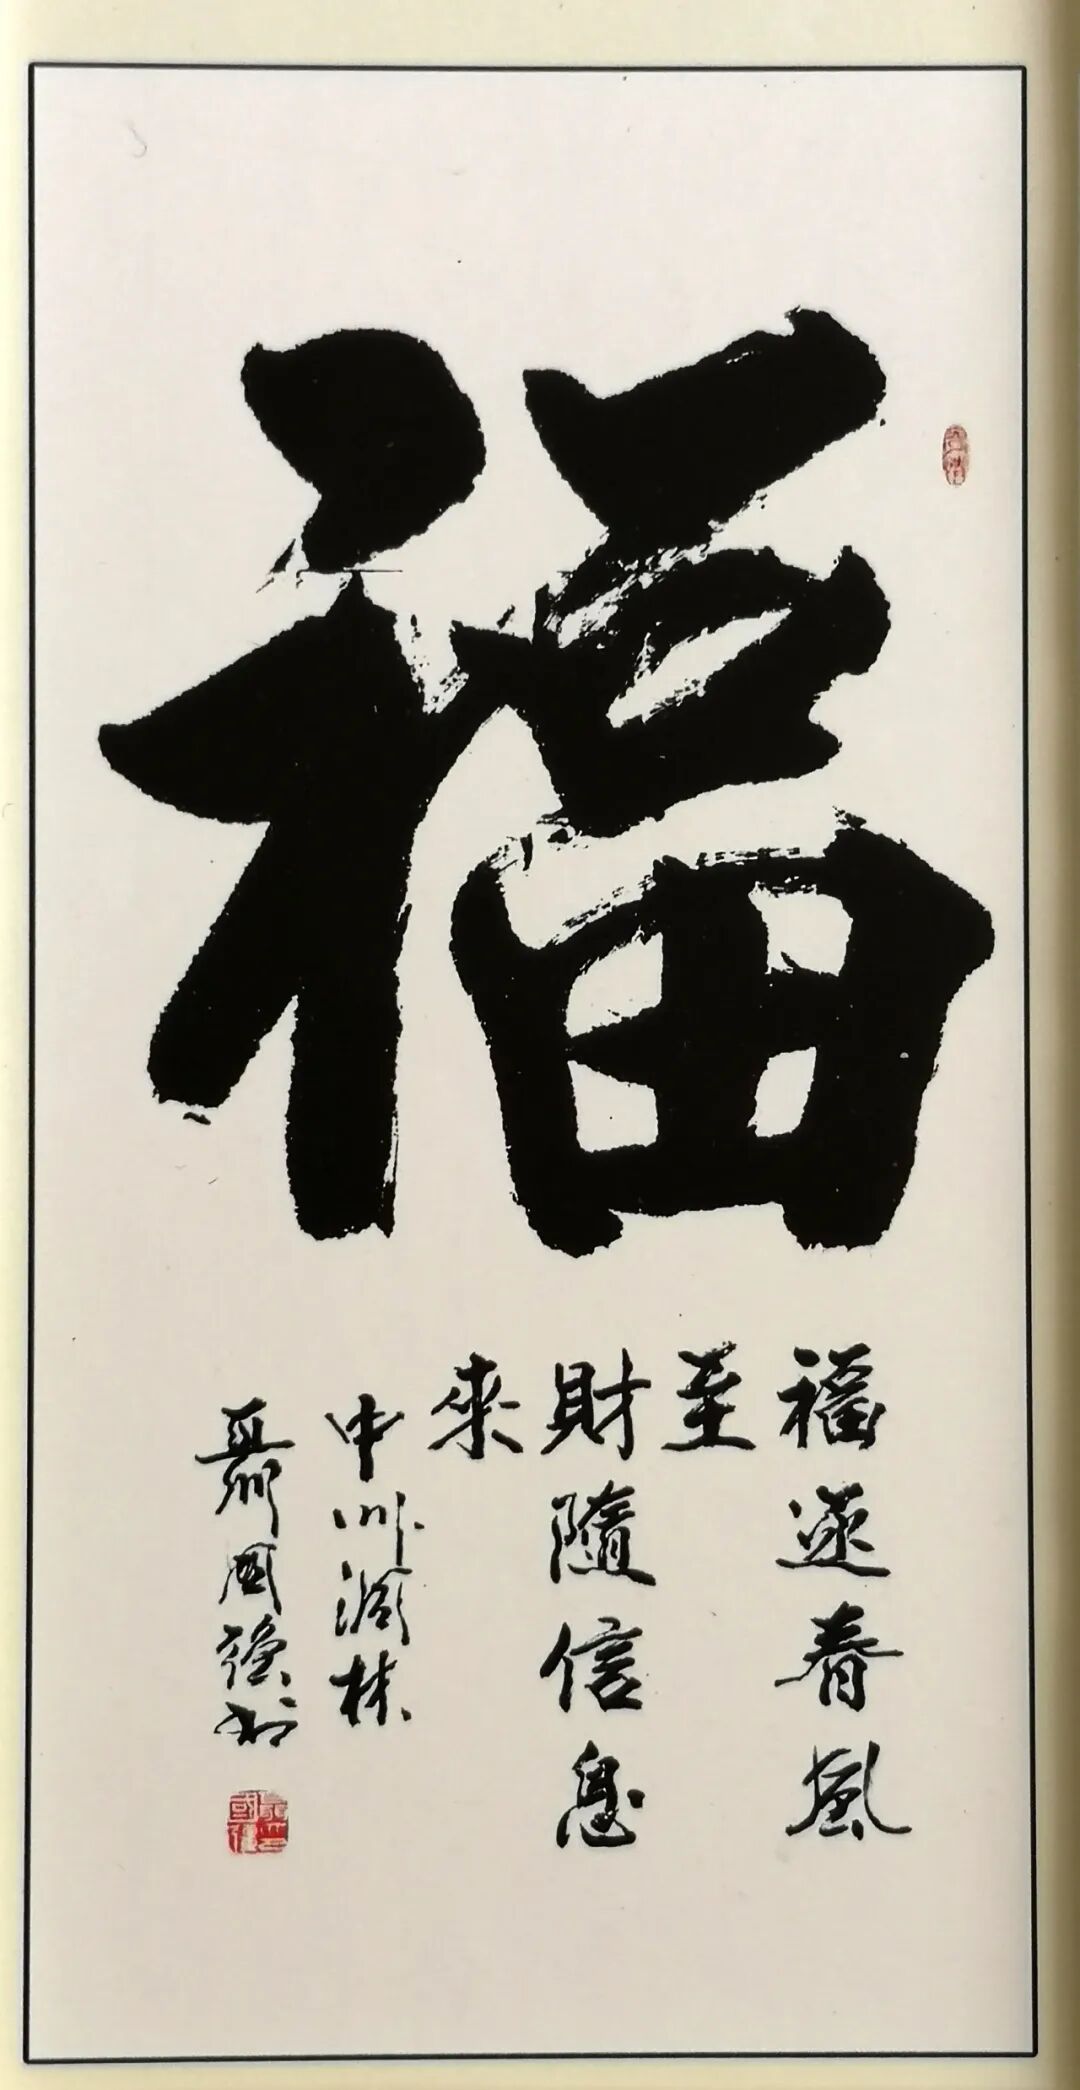 福
福逐春風
至
財隨信息
來
中州 林
聶國強書